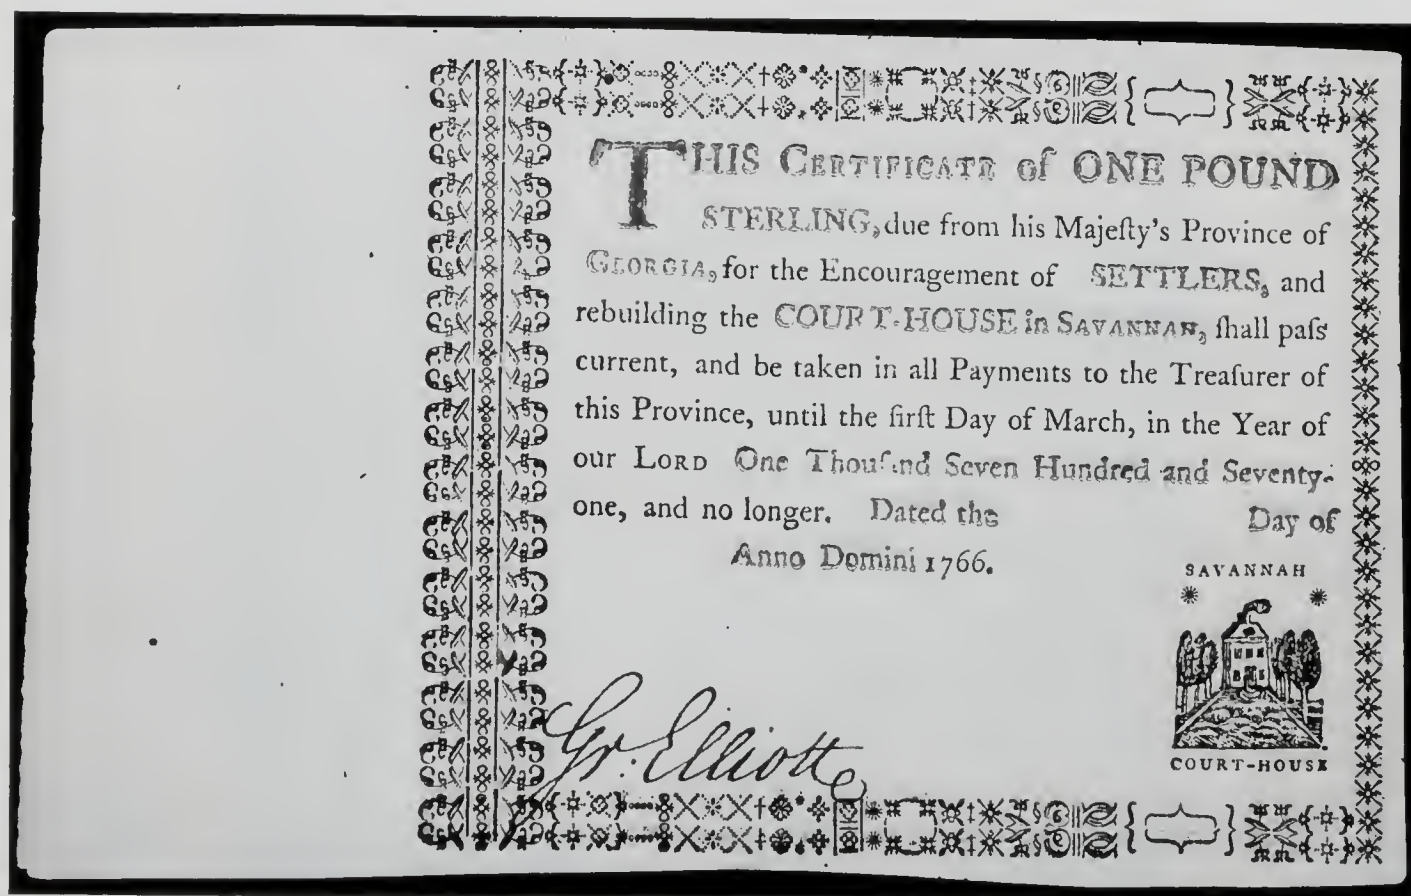 THIS CERTIFICATE of ONE POUND
STERLING, due from his Majeſty's Province of
GEORGIA, for the Encouragement of SETTLERS, and
rebuilding the COURT-HOUSE in SAVANNAH, ſhall paſs
current, and be taken in all Payments to the Treaſurer of
this Province, until the firſt Day of March, in the Year of
our LORD One Thouſand Seven Hundred and Seventy-
one, and no longer. Dated the Day of
Anno Domini 1766.
SAVANNAH
COURT-HOUSE
Gr. Elliott